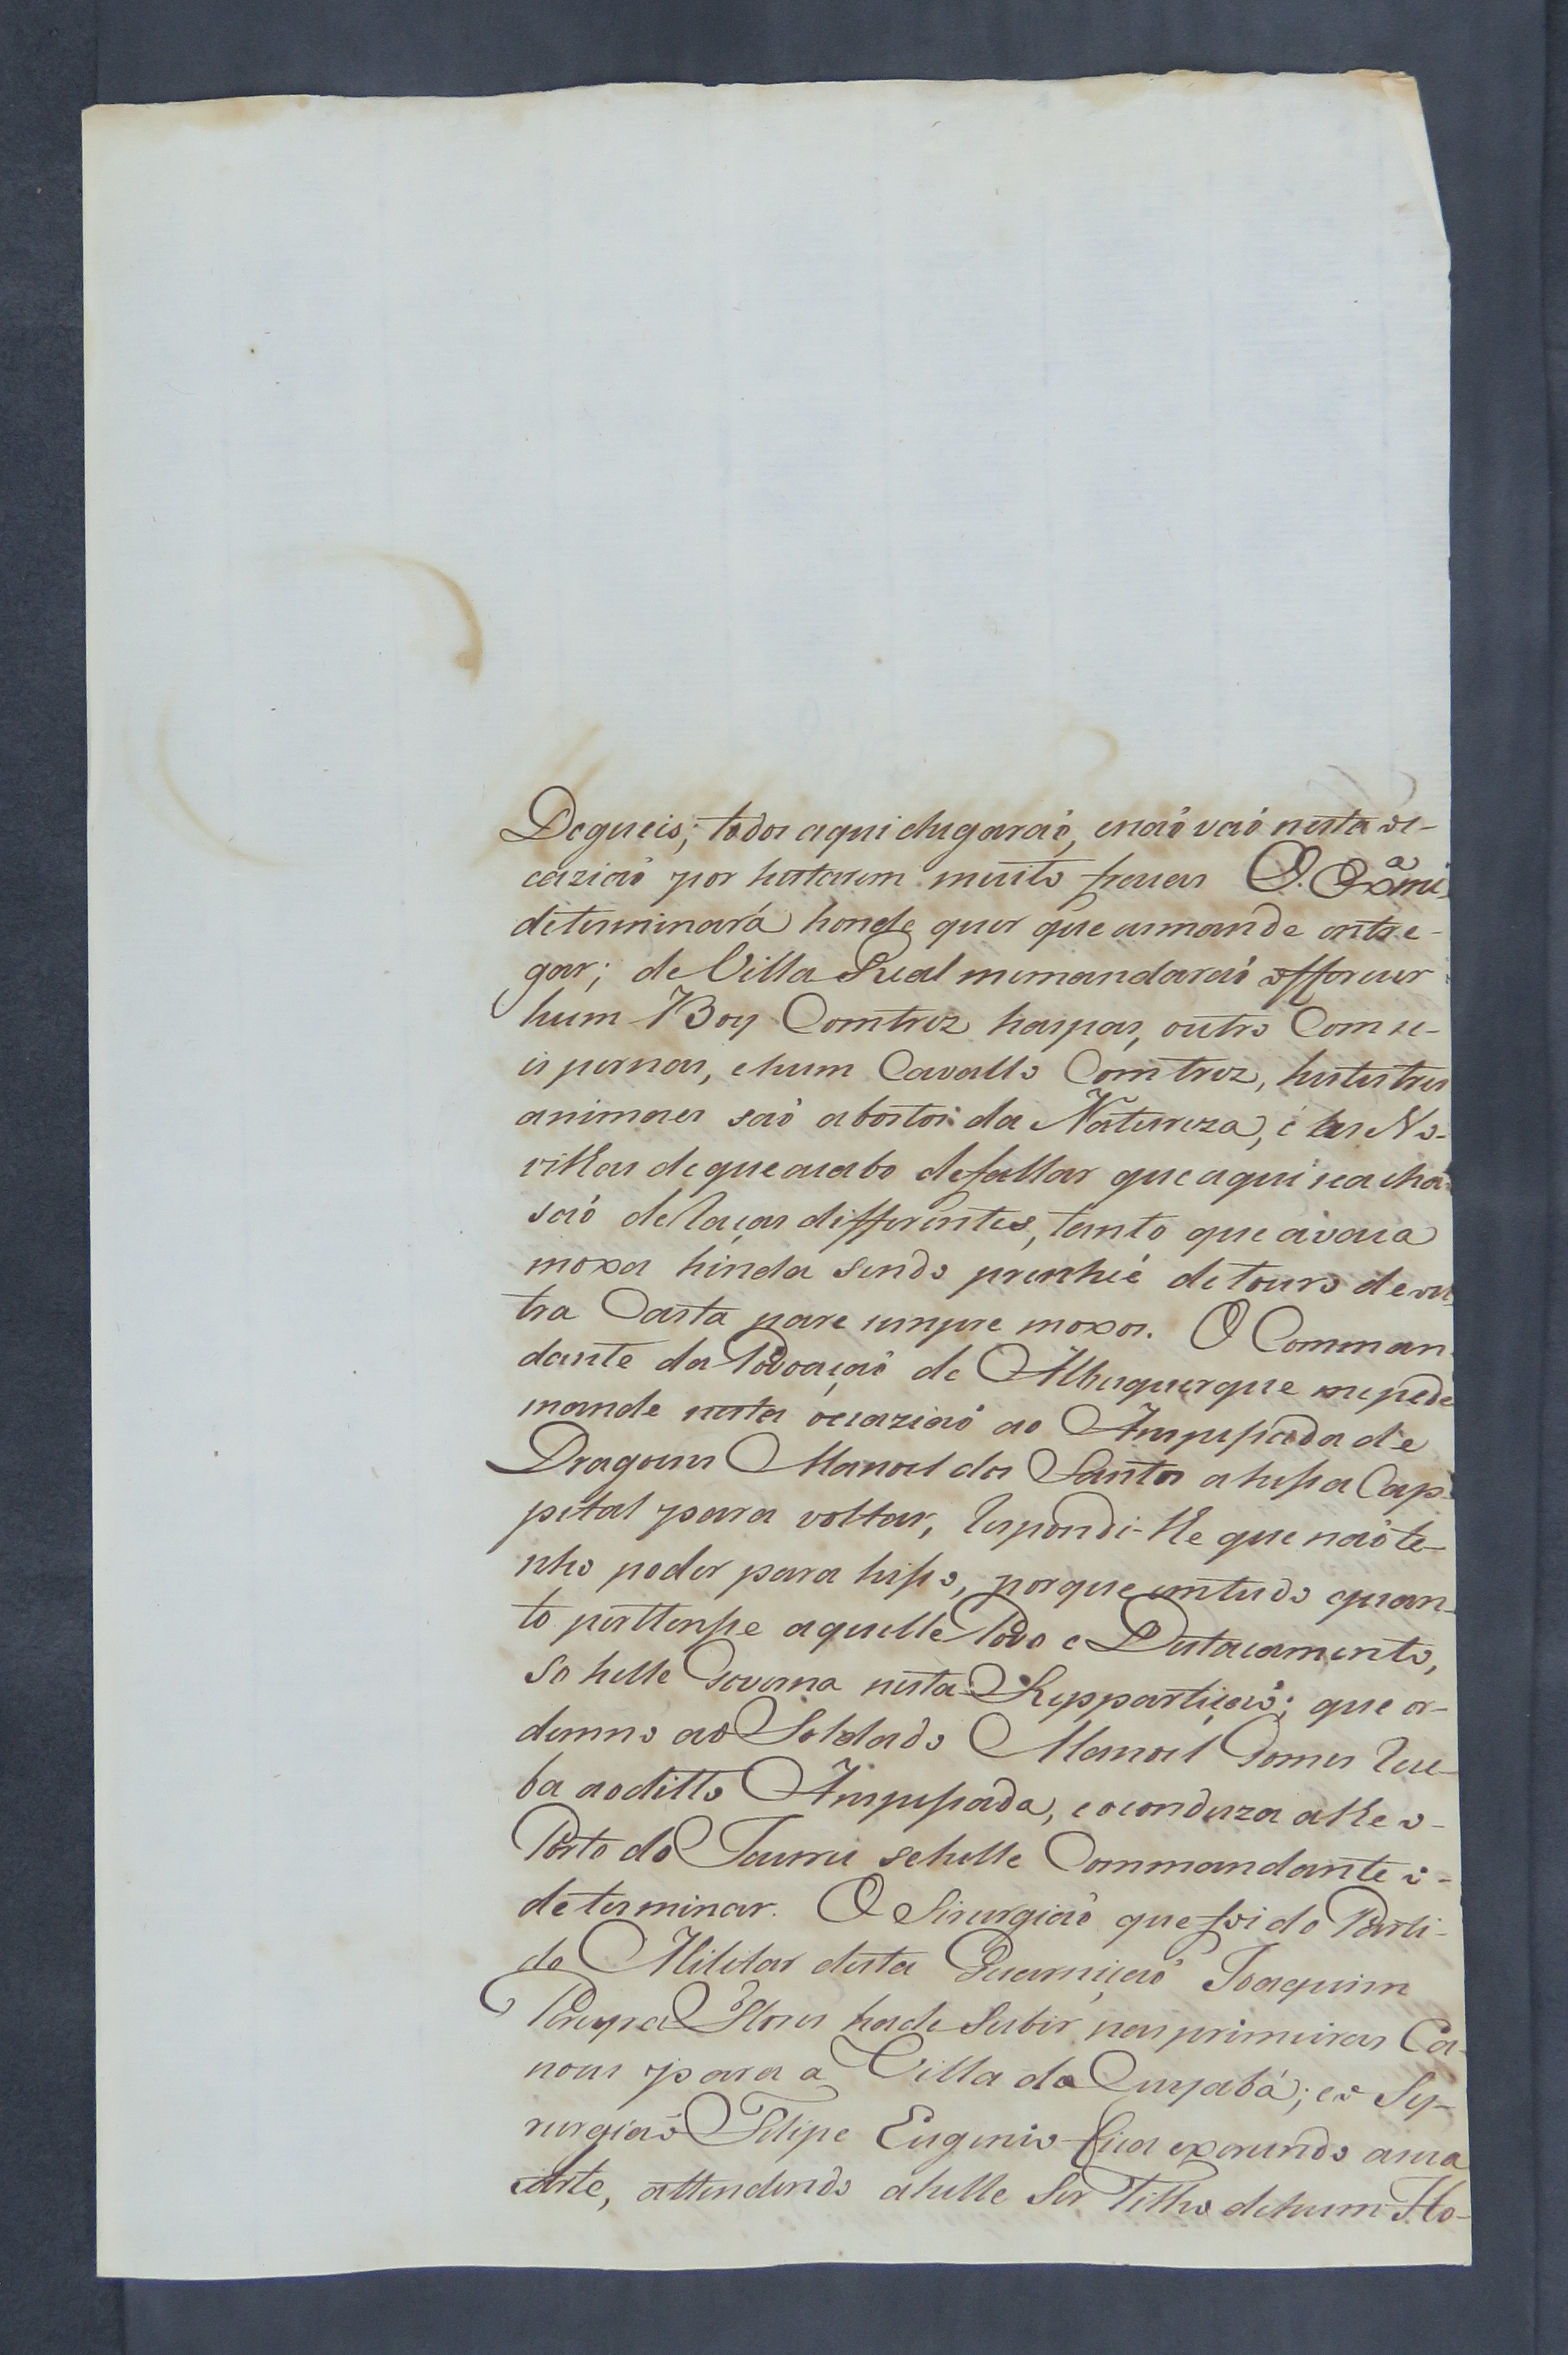 Degueis; todos aqui chegaraõ, enaõ vaõ nesta oc-
caziaõ por hestarem muito fracas V. Exa. mi
determinará honde quer que asmande entre-
gar; de Villa Real memandaraõ offerecer
hum Boy Comtrez haspas, outro Com se-
is pernas, ehum Cavallo Comtrez, hestestres
animaes saõ abortos da Natureza, é as No-
vilhas dequeacabo defallar que aqui seachaõ
saõ de raças differentes, tanto que avaca
moxa hinda sendo prenhe é detouro de ou-
tra Casta pare sempre moxos. O Comman-
dante da Povoaçaõ de Albuquerque mepede
mande nesta occaziaõ ao Anspessada de
Dragoens Manoel dos Santos ahessa Cap-
pital para voltar, respondi-lhe que naõ te-
nho poder para hisso, porque emtudo quan-
to pertense aquelle Povo e Destacamento,
so helle Governa nesta Reppartiçaõ; que or-
demno ao Soldado Manoel Gomes rece-
ba aoditto Anspessada, eoconduza athe o-
Porto do Jaurú sehelle Commandante o-
determinar. O Sirurgiaõ que foi do Parti-
do Militar desta Guarniçaõ Joaquim
Pereira Flores hade Subir nasprimeiras Ca-
noas para a Villa do Cuyabá; eo Sy-
rurgiaõ Felipe Eugenio fica exersendo asua
Arte, attendendo ahelle Ser Filho dehum Ho-